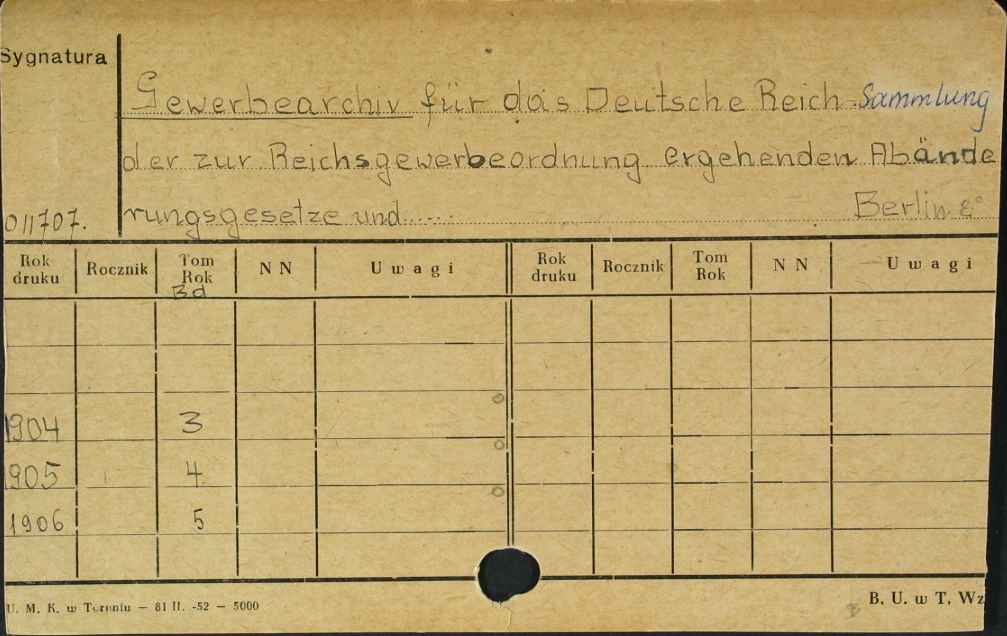 Sygnatura
Gewerbearchiv für das Deutsche Reich. Sammlung
der zur Reichsgewerbeordnung ergehenden Abände
rungsgesetze und..... Berlin 8°
011707.
Rok druku Rocznik Tom Rok NN Uwagi Rok druku Rocznik Tom Rok NN Uwagi
Bd
1904 3
1905 4
1906 5
U. M. K. w Toruniu — 81 II. -52 — 5000 B. U. w T. Wz